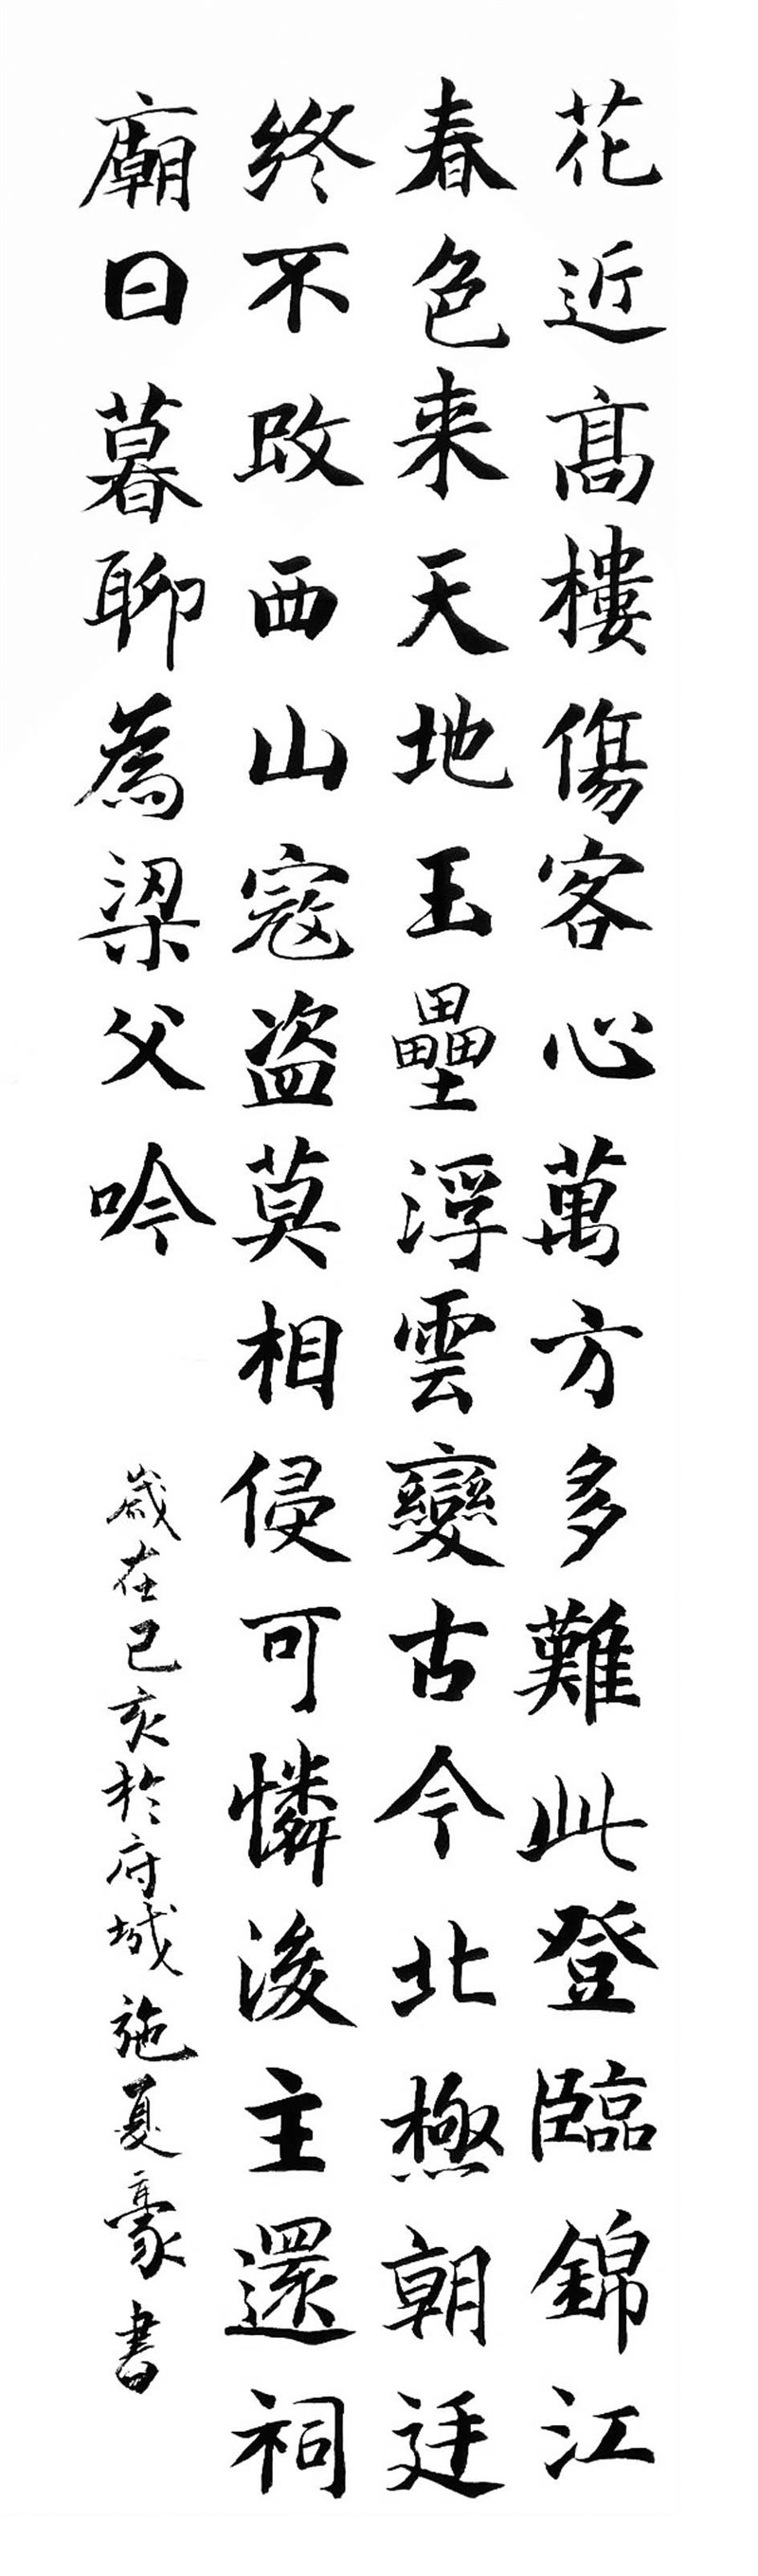 花近高樓傷客心萬方多難此登臨錦江
春色来天地玉壘浮雲變古今北極朝廷
終不改西山寇盗莫相侵可憐後主還祠
廟日暮聊為梁父吟
歲在己亥於府城施夏豪書